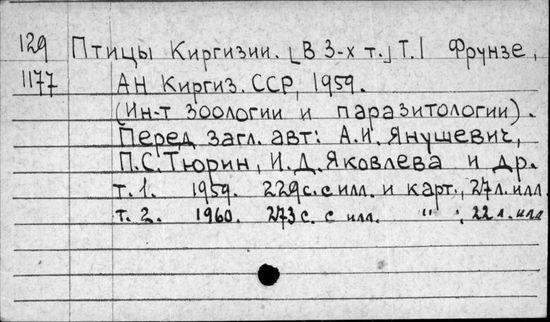 129 Птицы Киргизии. [В 3-х т.] Т.1 Фрунзе,
1177 АН Киргиз. ССР, 1959.
(Ин-т зоологии и паразитологии).
Перед загл. авт: А.И. Янушевич,
П.С. Тюрин, И.Д. Яковлева и др.
т. 1. 1959. 229 с. с илл. и карт., 27 л. илл.
т. 2. 1960. 273 с. с илл. " ", 22 л. илл